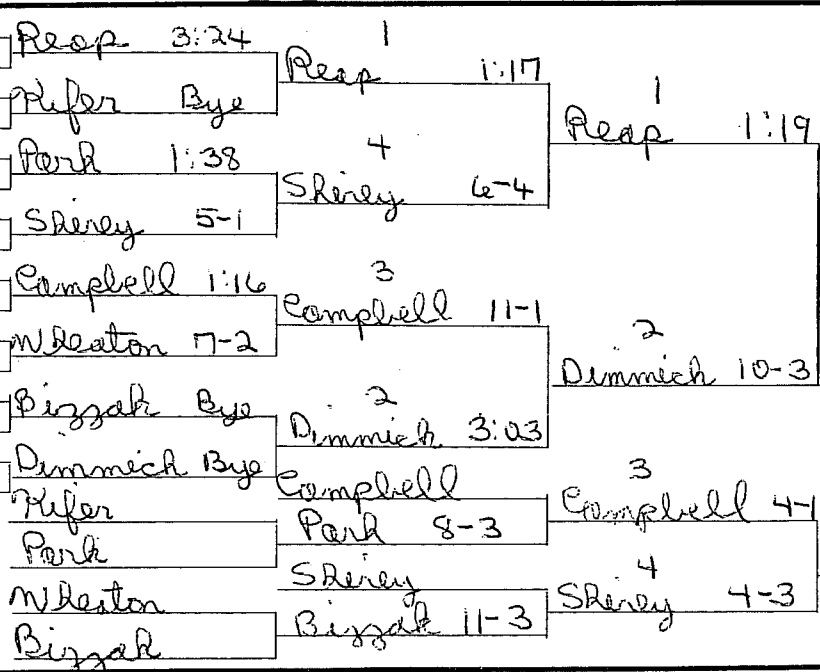 Reap 3:24
Kifer Bye
Park 1:38
Shirey 5-1
Campbell 1:16
Wheaton 7-2
Bizzak Bye
Dimmich Bye
Kifer
Park
Wheaton
Bizzak
1
Reap 1:17
4
Shirey 6-4
3
Campbell 11-1
2
Dimmich 3:03
Campbell
Park 8-3
Shirey
Bizzak 11-3
1
Reap 1:19
2
Dimmich 10-3
3
Campbell 4-1
4
Shirey 4-3